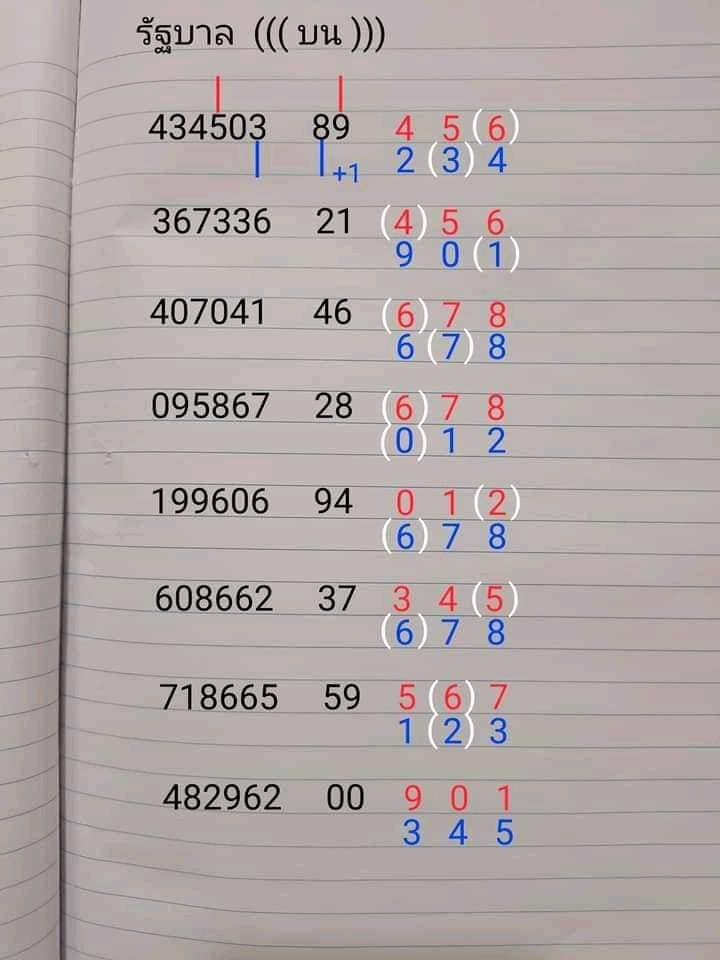 รัฐบาล ((( บน )))
434503 89 4 5 (6)
+1 2 (3) 4
367336 21 (4) 5 6
9 0 (1)
407041 46 (6) 7 8
6 (7) 8
095867 28 (6) 7 8
(0) 1 2
199606 94 0 1 (2)
(6) 7 8
608662 37 3 4 (5)
(6) 7 8
718665 59 5 (6) 7
1 (2) 3
482962 00 9 0 1
3 4 5